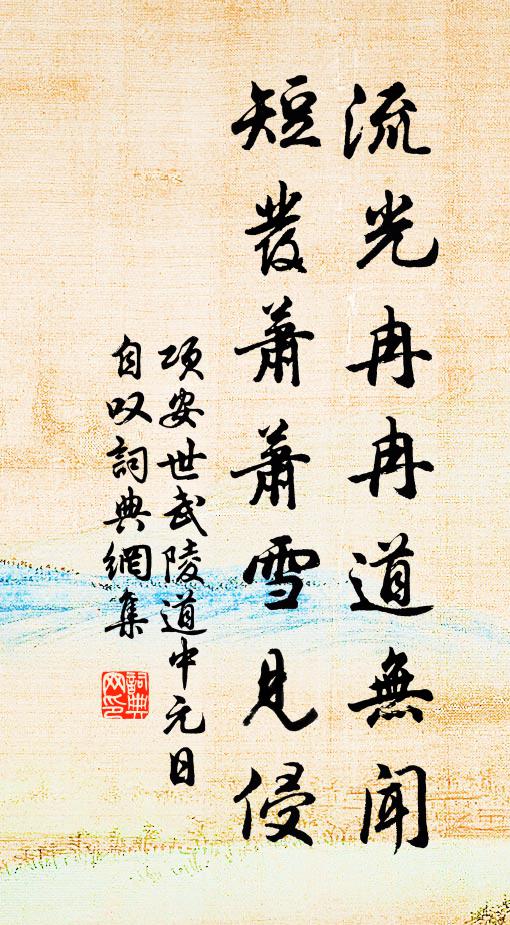 流光冉冉道無聞
短發蕭蕭雪見侵
項安世武陵道中元日
自叹詞典網集
詞典
网印